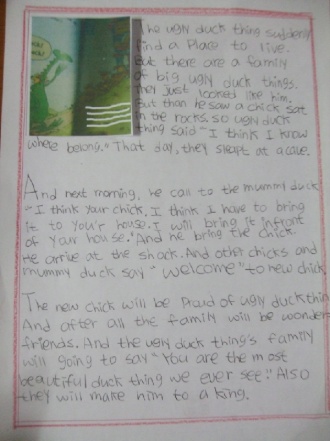 The ugly duck thing suddenly
find a Place to live.
But there are a family
of big ugly duck things.
They just looked like him.
But than he saw a chick sat
in the rocks. so ugly duck
thing said "I think I know
where belong." That day, they sleapt at a cave.
And next morning, he call to the mummy duck
"I think your chick. I think I have to bring
it to your house. I will bring it infront
of your house." And he bring the chick.
He arrive at the shack. And other chicks and
mummy duck say "welcome" to new chick.
The new chick will be Proud of ugly duck thin
And after all the family will be wonder
friends. And the ugly duck thing's family
will going to say "You are the most
beautiful duck thing we ever see." Also
they will make him to a king.